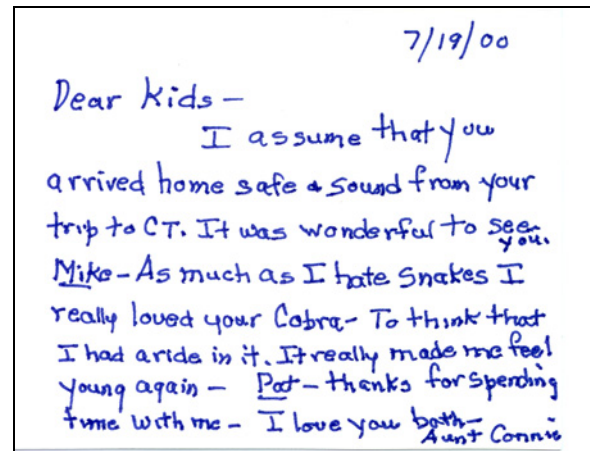 7/19/00
Dear Kids -
I assume that you
arrived home safe & sound from your
trip to CT. It was wonderful to see
you.
Mike - As much as I hate snakes I
really loved your Cobra - To think that
I had a ride in it. It really made me feel
young again - Pat - thanks for spending
time with me - I love you both -
Aunt Connie